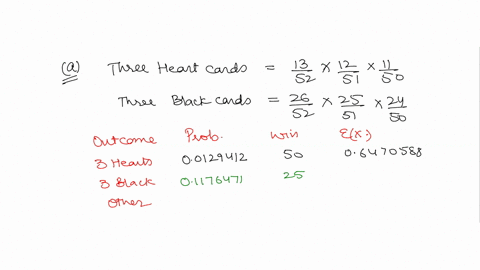 (a) Three Heart cards = 13/52 × 12/51 × 11/50
Three Black cards = 26/52 × 25/51 × 24/50
Outcome Prob. Win E(X)
3 Hearts 0.0129412 50 0.6470588
3 Black 0.1176471 25
Other